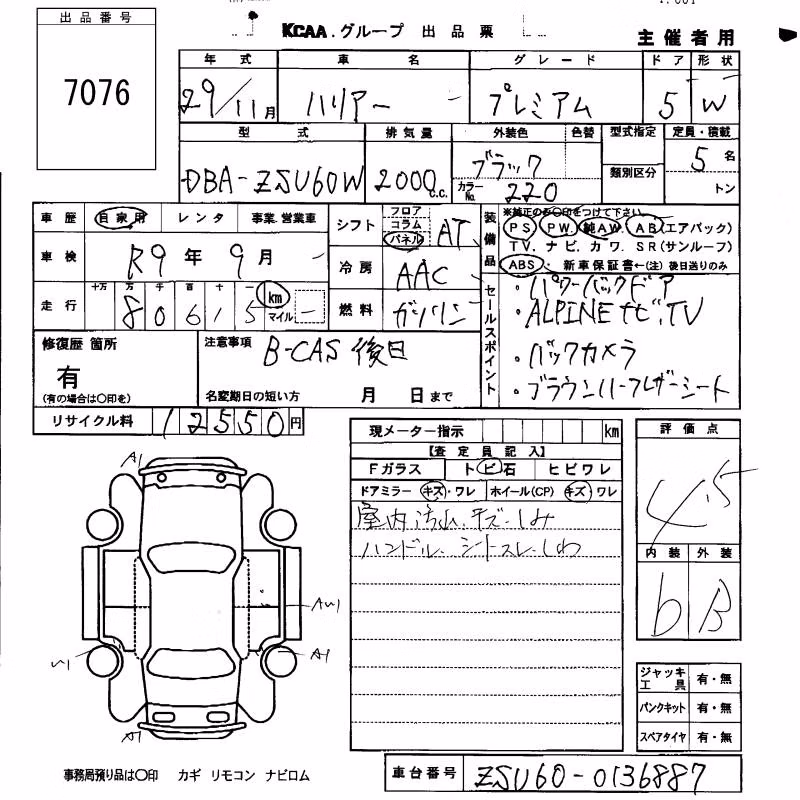 出品番号
7076
KCAA.グループ 出品票
主催者用
年式 車名 グレード ドア 形状
29/11月 ハリアー プレミアム 5 W
型式 排気量 外装色 色替 型式指定 定員・積載
DBA-ZSU60W 2000c.c. ブラック カラーNo. 220 類別区分 5名 トン
車歴 自家用 レンタ 事業.営業車
車検 R9年9月
走行 十万 万 千 百 十 80615 km マイル
シフト フロア コラム パネル AT
冷房 AAC
燃料 ガソリン
装備品 ※純正のみ○印をつけて下さい
PS PW. 純AW. AB(エアバック)
TV. ナビ. カワ. SR(サンルーフ)
ABS・新車保証書←(注)後日送りのみ
セールスポイント
・パワーバックドア
・ALPINEナビ.TV
・バックカメラ
・ブラウンハーフレザーシート
修復歴 箇所
有
(有の場合は○印を)
注意事項 B-CAS 後日
名変期日の短い方 月 日まで
リサイクル料 12550円
現メーター指示 km
【査定員記入】
Fガラス トビ石 ヒビワレ
ドアミラー キズ・ワレ ホイール(CP) キズ ワレ
室内汚れ.キズ.しみ
ハンドル.シートスレ.しわ
評価点
4.5
内装 外装
b B
A1
A1
A1
ジャッキ工具 有・無
パンクキット 有・無
スペアタイヤ 有・無
事務局預り品は○印 カギ リモコン ナビロム
車台番号 ZSU60-0136887